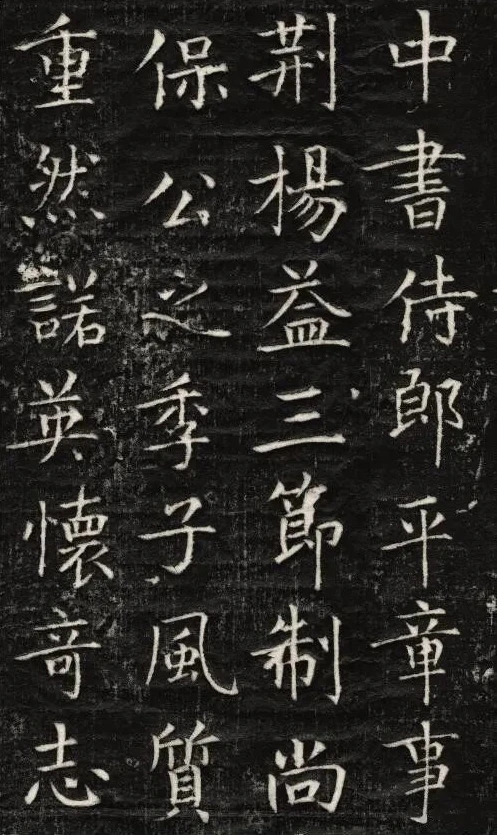 中書侍郎平章事
荆楊益三節制尚
保公之季子風質
重然諾英懷竒志